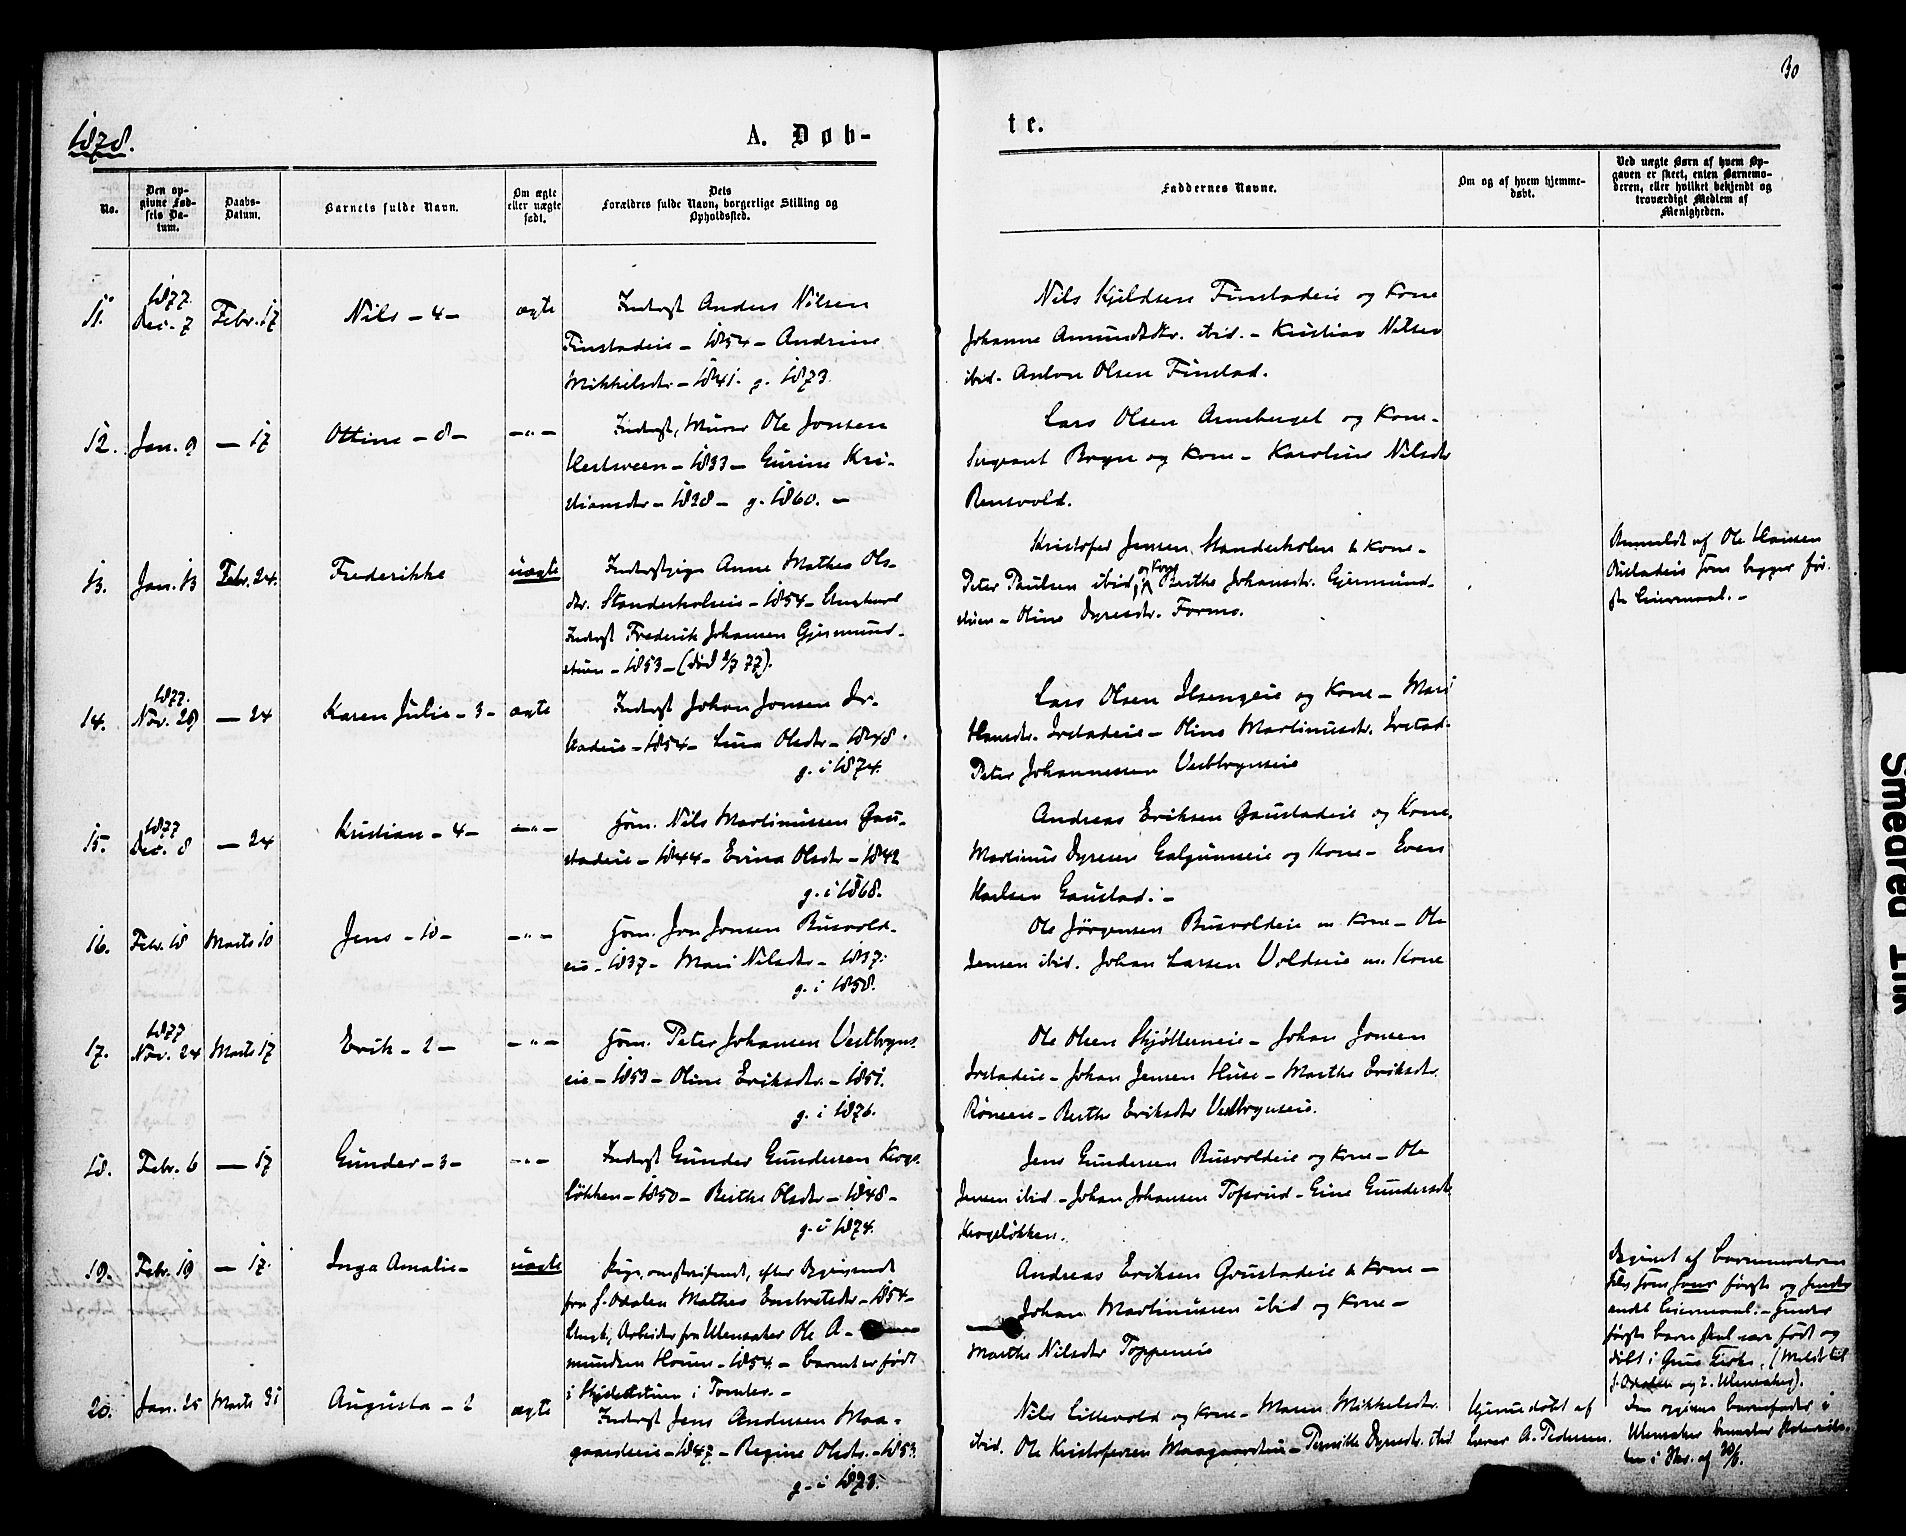 30
1878.
A. Døb-
te.
No.
Den op-
givne Fød-
sels Da-
tum.
Daabs-
Datum.
Barnets fulde Navn.
Om ægte
eller uægte
født.
Dets
Forældres fulde Navn, borgerlige Stilling og
Opholdssted.
Faddernes Navne.
Om og af hvem hjemme-
døbt.
Ved uægte Børn af hvem Op-
gaven er skeet, enten Barnemo-
deren, eller hvilket bekjendt og
troværdigt Medlem af
Menigheden.
11.
1877.
Dec. 7
Febr. 17
Nils - 4 -
ægte
Inderst Anders Nilsen
Finstadeie - 1854 - Andrine
Mikkelsdtr - 1841. g. 1873.
Nils Kjeldsen Finstadeie og Kone
Johanne Amundsdtr. ibid. - Kristian Nilsen
ibid. Anton Olsen Finstad.
12.
Jan. 9
- 17
Ottine - 8 -
- " -
Inderst, Murer Ole Jonsen
- 1833 - Gurine Kri-
stiansdtr - 1838 - g. 1860. -
Lars Olsen Arneberget og Kone -
Sergeant Bryn og Kone - Karoline Nilsdtr
Rensvold.
13.
Jan. 13
Febr. 24.
Frederikke
uægte
Anne Mathea Ols-
dtr. - 1854 - Ungkarl
Inderst Frederik Johansen Gjermund-
stuen - 1853 - (død 2/7 77).
Kristofer Jensen Standerholen & Kone -
Peter Paulsen ibid. og Kone Berthe Johansdtr. Gjermund-
stuen - Oline Dyresdtr. Formo.
Anmeldt af Ole Hansen
som begges før-
ste Leiermaal. -
14.
1877.
Nov. 29
- 24
Karen Julie - 3 -
ægte
Inderst Johan Jonsen Ir-
stadeie - 1854 - Lina Olsdtr - 1848.
g. i 1874.
Lars Olsen Ilsengeie og Kone - Mari
Hansdtr. Irstadeie - Oline Martinusdtr. Irstad -
Peter Johannessen Vestbyneie
15.
1877
Dec. 8
- 24
Kristian - 4 -
- " -
Hom. Nils Martinussen Gau-
stadeie - 1844 - Evina Olsdtr - 1842
g. i 1868.
Andreas Eriksen Gaustadeie og Kone.
Martinus Dyresen Galguneie og Kone - Even
Karlsen Gaustad. -
16.
Febr. 18
Marts 10
Jens - 10 -
- " -
Hom. Jon Jonsen Busvold-
eie - 1837 - Mari Nilsdtr - 1837.
g. i 1858.
Ole Jørgensen Busvoldeie m Kone - Ole
Jensen ibid. Johan Larsen Voldseie m. Kone
17.
1877
Nov. 24
Marts 17
Erik - 2 -
- " -
Hom. Peter Johansen Vestbyns-
eie - 1853 - Oline Eriksdtr. - 1851.
g. i 1876.
Ole Olsen - Johan Jonsen
Irstadeie - Johan Jensen Huse - Marthe Eriksdtr.
Rønseie - Berthe Eriksdtr Vestbynseie.
18.
Febr. 6
- 17
Gunder - 3 -
- " -
Inderst Gunder Gundersen Krogs-
løkken - 1850 - Berthe Olsdtr - 1848 -
g. i 1874.
Jens Gundersen Busvoldeie og Kone - Ole
Jensen ibid. - Johan Johansen Tofsrud - Gine Gundersdtr
Krogsløkken.
19.
Febr. 19
- 17.
Inga Amalie -
uægte
Pige, omstreifende, efter Opgivende
fra S. Odalen Mathea Embretsdtr. - 1854 -
Ungk, Arbeider fra Ullensaker Ole A-
mundsen Hovin - 1854 - barnet er født
i i Tomter. -
Andreas Eriksen Grustadeie & Kone -
Johan Martinussen ibid og Kone -
Marthe Nilsdtr Toppeneie
Opgivet af barnemoderen
som hans første og hendes
andet Leiermaal. - Hendes
første barn skal være født og
døbt i Grue Kirke. (Meldt til
S. Odalen og t. Ullensaker).
20.
Jan. 25
Marts 31
Augusta - 2
ægte
Inderst Jens Andersen Maa-
gaardseie - 1847 - Regine Olsdtr. - 1853.
g. i 1873.
Nils Lillevold og Kone - Maren Mikkelsdtr.
ibid. Ole Kristofersen Maagaardseie - Pernille Dyresdtr. ibid
Hjemmedøbt af
Lærer A. Pedersen.
Den opgivne barnefader i
Ullensaker
i Skr. af 30/6.
Smeared Ink